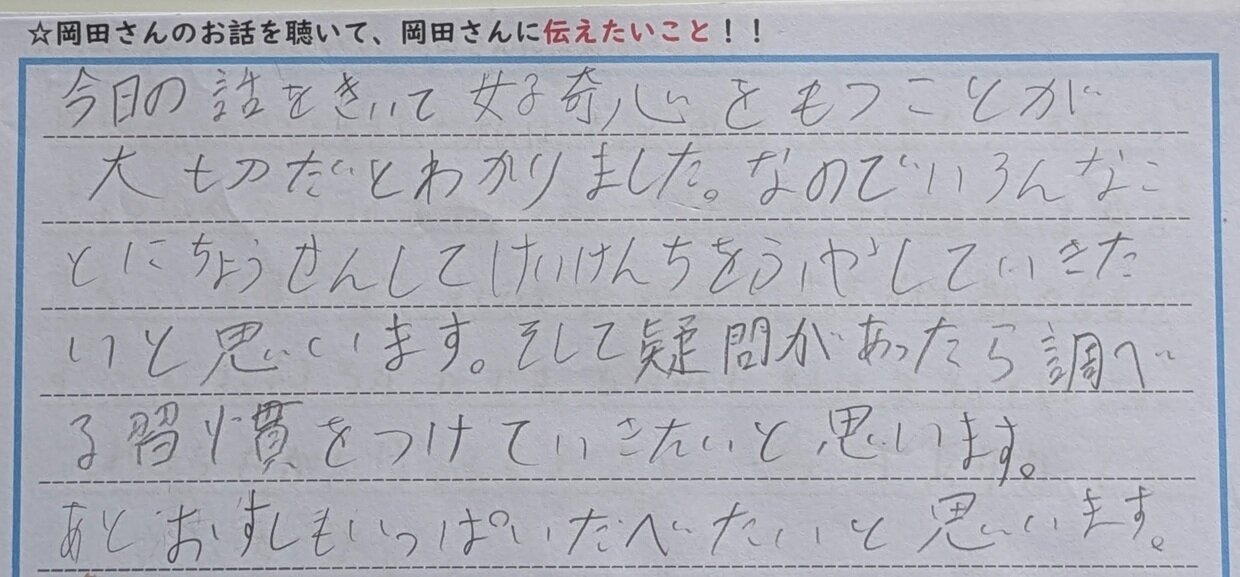 ☆岡田さんのお話を聴いて、岡田さんに伝えたいこと！！
今日の話をきいて好奇心をもつことが
大切だとわかりました。なのでいろんなこ
とにちょうせんしてけいけんちをふやしていきた
いと思います。そして疑問があったら調べ
る習慣をつけていきたいと思います。
あとおすしもいっぱいたべたいと思います。